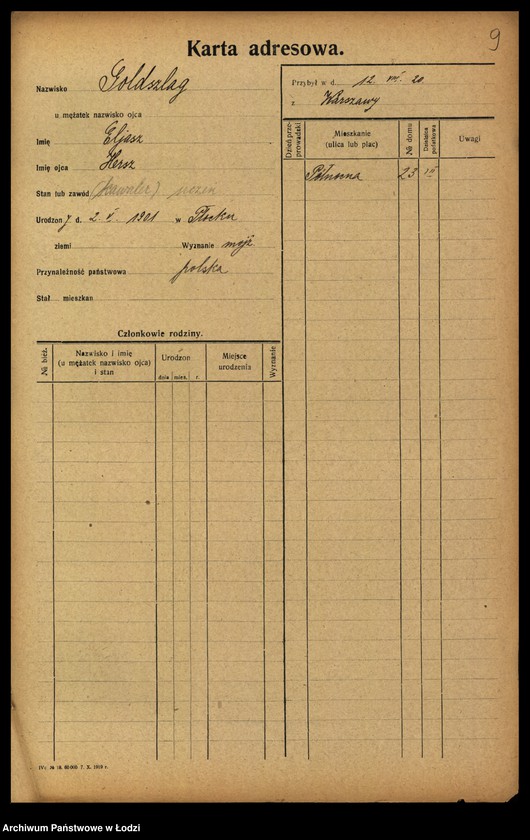 9
Karta adresowa.
Nazwisko Goldszlag
u mężatek nazwisko ojca
Imię Eljasz
Imię ojca Hersz
Stan lub zawód (kawaler) uczeń
Urodzony d. 2. V. 1901 w Płocku
ziemi Wyznanie mojż
Przynależność państwowa polska
Stał. mieszkan
Przybył w d. 12. VII. 20.
z Warszawy
Dzień przeprowadzki
Mieszkanie
(ulica lub plac)
№ domu
Dzielnica podatkowa
Uwagi
23 III
Członkowie rodziny.
№ bież.
Nazwisko i imię
(u mężatek nazwisko ojca)
i stan
Urodzon
dnia mies. r.
Miejsce
urodzenia
Wyznanie
7. X. 1919 r.
Archiwum Państwowe w Łodzi